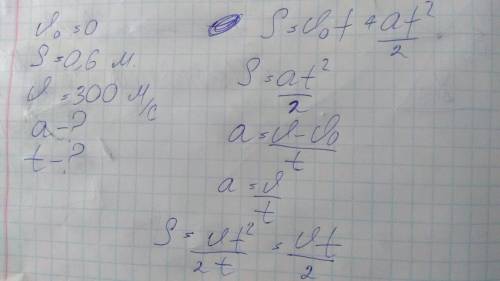 υ₀ = 0
S = 0,6 м
υ = 300 м/с
a - ?
t - ?
S = υ₀t + at²/2
S = at²/2
a = υ - υ₀/t
a = υ/t
S = υt²/2t = υt/2